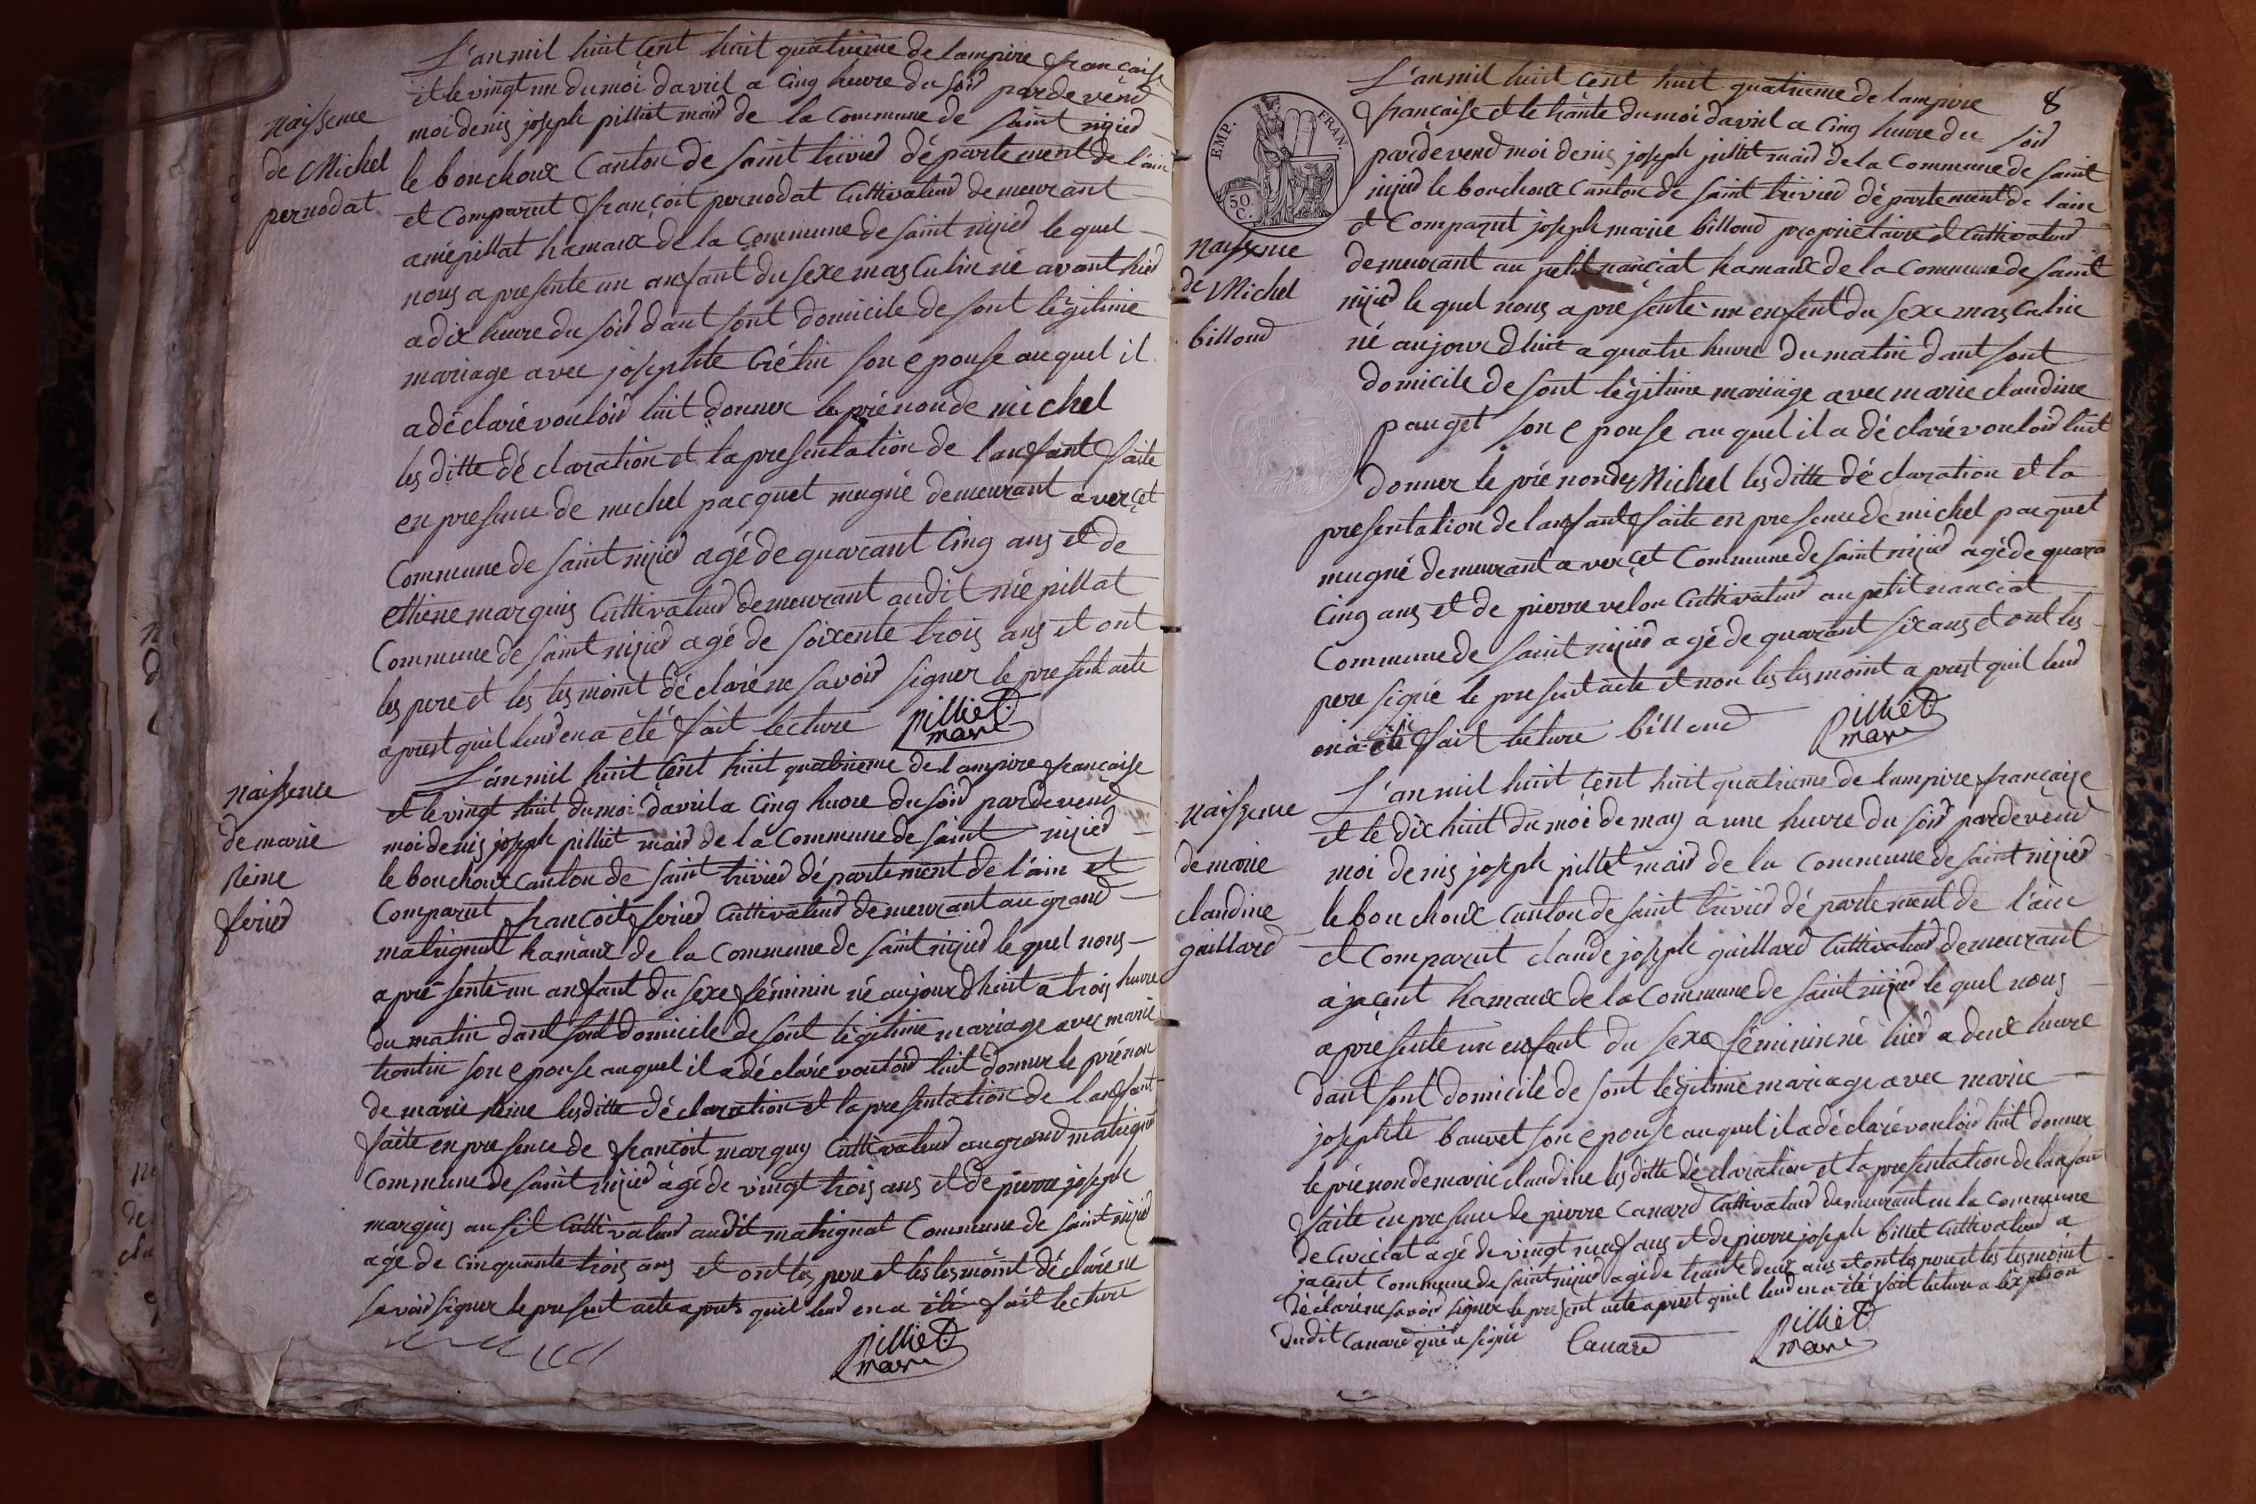 naissence
de Michel
pernodat
L'an mil huit cent huit quatrieme de lampire française
et le vingt un du moi davril a cinq heure du soir pardevend
moi denis joseph pilliet maire de la commune de saint nizied
le bouchoux canton de saint trivied département de l'ain
et comparut françoit pernodat cultivateur demeurant
a mépillat hamaux de la commune de saint nizied le quel
nous a presente un anfant du sexe masculin né avant hier
a dix heure du soir dant sont domicile de sont légitime
mariage avec josephte crétin son epouse auquel il
a déclaré vouloir luit donner le prénon de michel
les ditte déclaration et la presentation de l'anfant faite
en presence de michel pacquet mugnié demeurant a verçet
commune de saint nizied agé de quarant cinq ans et de
ethiene marquis cultivateur demeurant audit mépillat
commune de saint nizied agé de soixente trois ans et ont
les pere et les tesmoint déclaré ne savoir signer le present acte
a prest quil leur en a été fait lecture pilliet
maire
naissence
de marie
Reine
ferier
L'an mil huit cent huit quatrieme de l'ampire française
et le vingt huit du moi davril a cinq heure du soir pardevend
moi denis joseph pilliet maire de la commune de saint nizied
le bouchoux canton de saint trivied département de l'ain et
comparut françoit ferier cultivateur demeurant au grand
matrignat hamaux de la commune de saint nizied le quel nous
a présenté un anfant du sexe féminin né aujourdhuit a trois heure
du matin dant sont domicile de sont légitime mariage avec marie
trontin son epouse auquel il a déclaré vouloir luit donner le prénon
de marie Reine les ditte déclaration et la presentation de l'anfant
faite en presence de françoit marquy cultivateur au grand matrignat
commune de saint nizied agé de vingt trois ans et de pierre joseph
marquis au sit cultivateur audit matrignat commune de saint nizied
agé de cinquante trois ans et ont les pere et les tesmoint déclaré ne
savoir signer le present acte a prets quil leur en a été fait lecture
pilliet
maire
8
EMP. FRAN.
50 C.
naissence
de Michel
billoud
L'an mil huit cent huit quatrieme de lampire
française et le trante du moi davril a cinq heure du soir
pardevend moi denis joseph pilliet maire de la commune de saint
nizied le bouchoux canton de saint trivied département de lain
et comparut joseph marie billoud propriétaire et cultivateur
demeurant au petit nanciat hamaux de la commune de saint
nizied le quel nous a présenté un enfent du sexe masculin
né aujourdhuit a quatre heure du matin dant sont
domicile de sont légitime mariage avec marie claudine
pauget son epouse auquel il a déclaré vouloir luit
donner le prénon de Michel les ditte déclaration et la
presentation de lanfant faite en presence de michel pacquet
mugnié demeurant a verçet commune de saint nizied agé de quara
cinq ans et de pierre velon cultivateur au petit nanciat
commune de saint nizied agé de quarant six ans et ont les
pere signé le present acte et non les tesmoint a prest quil leur
en a été fait lecture billoud pilliet
maire
naissence
de marie
claudine
gaillard
L'an mil huit cent huit quatrieme de lampire française
et le dix huit du moi de may a une heure du soir pardevend
moi denis joseph pilliet maire de la commune de saint nizied
le bouchoux canton de saint trivied département de l'ain
et comparut claude joseph gaillard cultivateur demeurant
a jaçent hamaux de la commune de saint nizied le quel nous
a presente un enfent du sexe féminin né hier a deux heure
dant sont domicile de sont légitime mariage avec marie
josephte bauvet son epouse auquel il a déclaré vouloir luit donner
le prénon de marie claudine les ditte déclaration et la presentation de lanfan
faite en presence de pierre canard cultivateur demeurant en la commune
de curciat agé de vingt neuf ans et de pierre joseph billet cultivateur a
jaçent commune de saint nizied agé de trante deux ans et ont les pere et les tesmoint
déclaré ne savoir signer le present acte a prest quil leur en a été fait lecture a lexption
dudit canard qui a signé Canard pilliet
maire